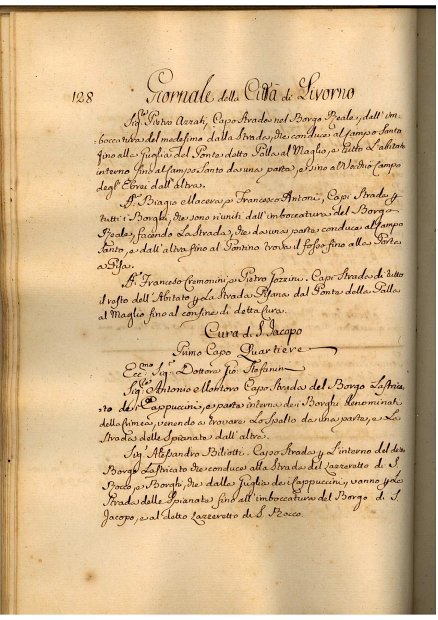 128 Giornale della Città di Livorno
Sig.r Pietro Azzati, Capo Strada nel Borgo Reale, dall' im-
boccatura del medesimo dalla Strada, che conduce al Campo Santo
fino alla Guglia del Ponte detto Palla al Maglio, e tutto l'abitato
interno fino al Campo Santo da una parte, e fino al Vecchio Campo
degl' Ebrei dall' altra.
Biagio e Francesco Antoni, Capi Strada
tutti i Borghi, che sono riuniti dall' imboccatura del Borgo
Reale, facendo La Strada, che da una parte conduce al Campo
Santo, e dall' altra fino al Pontino trova il fosso fino alla Porta
a Pisa.
Francesco Cremonini, e Pietro Capi Strada di tutto
il resto dell' Abitato Strada Pisana dal Ponte della Palla
al Maglio fino al confine di detta Cura.
Cura di S. Jacopo
Primo Capo Quartiere
Ecc.mo Sig.r Dottore Gio: Stefanini
Sig.r Antonio Montoro Capo Strada del Borgo Lastrica-
to dei Cappuccini, e parte interna dei Borghi denominati
della Crimea, venendo a trovare Lo Spalto da una parte, e La
Strada delle Spianate dall' altra.
Sig.r Alessandro Biliotti. Capo Strada L'interno del detto
Borgo Lastricato che conduce alla Strada del Lazzeretto di S.
Rocco, e Borghi, che dalla Guglia dei Cappuccini, vanno La
Strada delle Spianate fino all' imboccatura del Borgo di S.
Jacopo, e al detto Lazzeretto di S. Rocco.